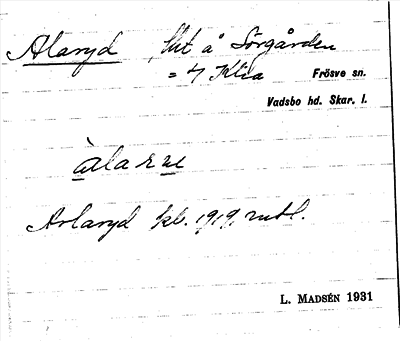 Alaryd slut å Sörgården
= 4 Klra Frösve sn.
Vadsbo hd. Skar. l.
àlarne
Arlaryd kb. 1919,
L. MADSÉN 1931